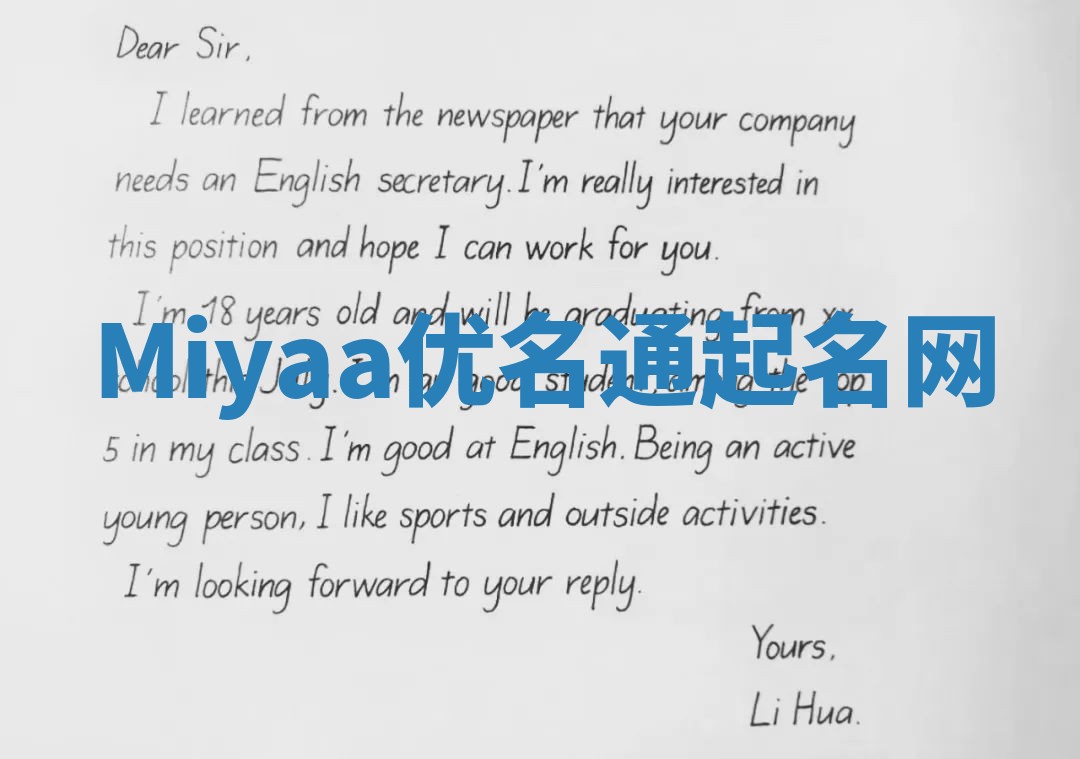 Dear Sir,
I learned from the newspaper that your company
needs an English secretary. I'm really interested in
this position and hope I can work for you.
I'm 18 years old and will be graduating from xx
Miyaa优名通起名网
school this July. I'm a good student, among the top
5 in my class. I'm good at English. Being an active
young person, I like sports and outside activities.
I'm looking forward to your reply.
Yours,
Li Hua.